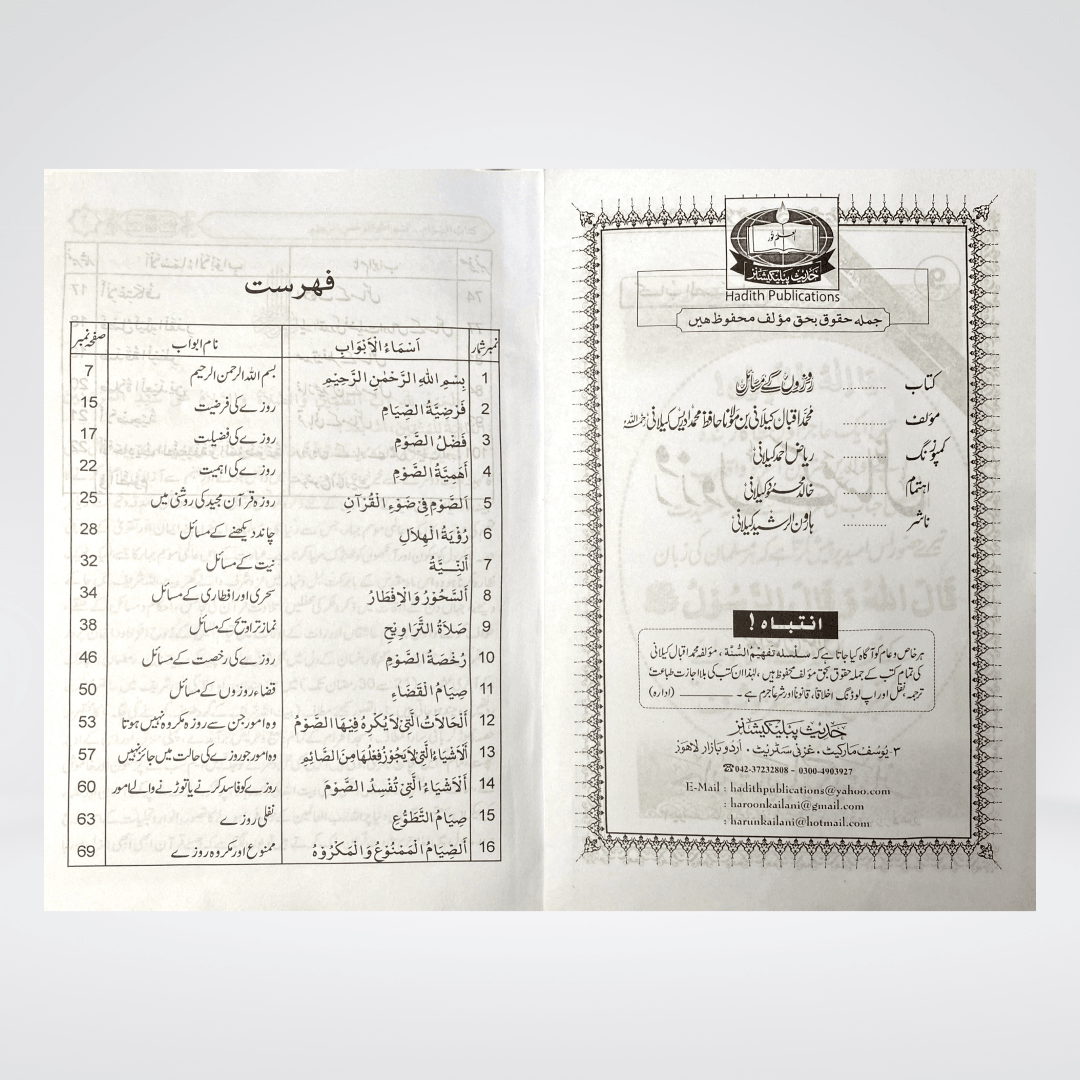 حدیث پبلیکیشنز
Hadith Publications
جملہ حقوق بحق مؤلف محفوظ ھیں
کتاب ............ روزوں کے مسائل
مؤلف ............ محمد اقبال کیلانی بن مولانا حافظ محمد ادریس کیلانی رحمہ اللہ
کمپوزنگ ............ ریاض احمد کیلانی
اہتمام ............ خالد محمود کیلانی
ناشر ............ ہارون الرشید کیلانی
انتباہ !
ہر خاص و عام کو آگاہ کیا جاتا ہے کہ سلسلہ تفہیم السنۃ ، مؤلفہ محمد اقبال کیلانی
کی تمام کتب کے جملہ حقوق بحق مؤلف محفوظ ہیں ، لہٰذا ان کتب کی بلا اجازت طباعت ،
ترجمہ ، نقل اور اپ لوڈنگ اخلاقاً ، قانوناً اور شرعاً جرم ہے ۔ ________ (ادارہ)
حدیث پبلیکیشنز
۳- یوسف مارکیٹ ، غزنی سٹریٹ ، اردو بازار لاہور
☎042-37232808 - 0300-4903927
E-Mail : hadithpublications@yahoo.com
: haroonkailani@gmail.com
: harunkailani@hotmail.com
فہرست
نمبر شمار اَسْمَاءُ الْاَبْوَابِ نام ابواب صفحہ نمبر
1 بِسْمِ اللهِ الرَّحْمٰنِ الرَّحِيْمِ بسم اللہ الرحمن الرحیم 7
2 فَرْضِيَّةُ الصِّيَامِ روزے کی فرضیت 15
3 فَضْلُ الصَّوْمِ روزے کی فضیلت 17
4 اَهَمِيَّةُ الصَّوْمِ روزے کی اہمیت 22
5 اَلصَّوْمِ فِيْ ضَوْءِ الْقُرْآنِ روزہ قرآن مجید کی روشنی میں 25
6 رُؤْيَةُ الْهِلَالِ چاند دیکھنے کے مسائل 28
7 اَلنِّيَّةُ نیت کے مسائل 32
8 اَلسَّحُوْرُ وَالْاِفْطَارُ سحری اور افطاری کے مسائل 34
9 صَلَاةُ التَّرَاوِيْحِ نماز تراویح کے مسائل 38
10 رُخْصَةُ الصَّوْمِ روزے کی رخصت کے مسائل 46
11 صِيَامُ الْقَضَاءِ قضاء روزوں کے مسائل 50
12 اَلْحَالَاتُ الَّتِيْ لَا يُكْرِهُ فِيْهَا الصَّوْمُ وہ امور جن سے روزہ مکروہ نہیں ہوتا 53
13 اَلْاَشْيَاءُ الَّتِيْ لَا يَجُوْزُ فِعْلُهَا مِنَ الصَّائِمِ وہ امور جو روزے کی حالت میں جائز نہیں 57
14 اَلْاَشْيَاءُ الَّتِيْ تُفْسِدُ الصَّوْمَ روزے کو فاسد کرنے یا توڑنے والے امور 60
15 صِيَامُ التَّطَوُّعِ نفلی روزے 63
16 اَلصِّيَامُ الْمَمْنُوْعُ وَالْمَكْرُوْهُ ممنوع اور مکروہ روزے 69